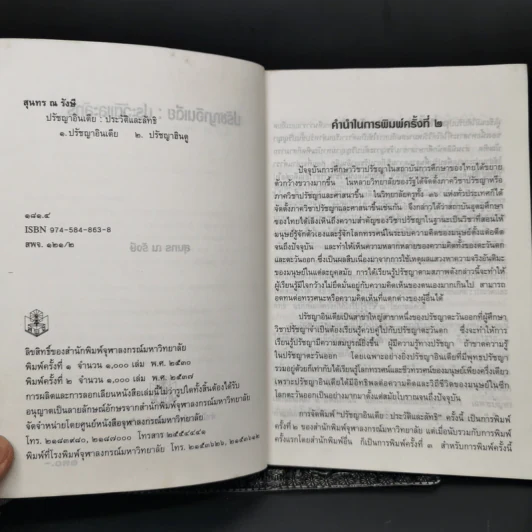 สุนทร ณ รังษี
ปรัชญาอินเดีย : ประวัติและลัทธิ
๑. ปรัชญาอินเดีย ๒. ปรัชญาฮินดู
๑๘๑.๔
ISBN 974-584-863-8
สพจ. ๑๒๑/๒
ลิขสิทธิ์ของสำนักพิมพ์จุฬาลงกรณ์มหาวิทยาลัย
พิมพ์ครั้งที่ ๑ จำนวน ๑,๐๐๐ เล่ม พ.ศ. ๒๕๓๐
พิมพ์ครั้งที่ ๒ จำนวน ๑,๐๐๐ เล่ม พ.ศ. ๒๕๓๗
การผลิตและการลอกเลียนหนังสือเล่มนี้ไม่ว่ารูปใดทั้งสิ้นต้องได้รับ
อนุญาตเป็นลายลักษณ์อักษรจากสำนักพิมพ์จุฬาลงกรณ์มหาวิทยาลัย
จัดจำหน่ายโดยศูนย์หนังสือจุฬาลงกรณ์มหาวิทยาลัย
โทร. ๒๑๘๗๐๐๐ โทรสาร ๒๕๔๔๔๔๑
พิมพ์ที่โรงพิมพ์จุฬาลงกรณ์มหาวิทยาลัย โทร.
คำนำในการพิมพ์ครั้งที่ ๒
ปัจจุบันการศึกษาวิชาปรัชญาในสถาบันการศึกษาของไทยได้ขยาย
ตัวกว้างขวางมากขึ้น ในหลายวิทยาลัยของรัฐได้จัดตั้งภาควิชาปรัชญาหรือ
ภาควิชาปรัชญาและศาสนาขึ้น ในวิทยาลัยครูทั้ง ๓๖ แห่งทั่วประเทศก็ได้
จัดตั้งภาควิชาปรัชญาและศาสนาขึ้นเช่นกัน จึงกล่าวได้ว่าสถาบันอุดมศึกษา
ของไทยได้เล็งเห็นถึงความสำคัญของวิชาปรัชญาในฐานะเป็นวิชาที่สอนให้
มนุษย์รู้จักตัวเองและรู้จักโลกทรรศน์ในระบบความคิดของมนุษย์ตั้งแต่อดีต
จนถึงปัจจุบัน และทำให้เห็นความหลากหลายของความคิดทั้งของตะวันตก
และตะวันออก ซึ่งเป็นผลสืบเนื่องมาจากการใช้เหตุผลแสวงหาความจริงอันติมะ
ของมนุษย์ในแต่ละยุคสมัย การได้เรียนรู้ปรัชญาตามสภาพดังกล่าวนี้จะทำให้
ผู้เรียนมีใจกว้างไม่ยึดมั่นอยู่กับความคิดเห็นของตนเองมากเกินไป สามารถ
อดทนต่อทรรศนะหรือความคิดเห็นที่แตกต่างของผู้อื่นได้
ปรัชญาอินเดียเป็นสาขาใหญ่สาขาหนึ่งของปรัชญาตะวันออกที่ผู้ศึกษา
วิชาปรัชญาจำเป็นต้องเรียนรู้ควบคู่ไปกับปรัชญาตะวันตก ซึ่งจะทำให้การ
เรียนรู้ปรัชญามีความสมบูรณ์ยิ่งขึ้น ผู้มีความรู้ทางปรัชญา ถ้าขาดความรู้
ในปรัชญาตะวันออก โดยเฉพาะอย่างยิ่งปรัชญาอินเดียที่มีพุทธปรัชญา
รวมอยู่ด้วยก็เท่ากับได้เรียนรู้โลกทรรศน์และชีวทรรศน์ของมนุษย์เพียงครึ่งเดียว
เพราะปรัชญาอินเดียได้มีอิทธิพลต่อความคิดและวิถีชีวิตของมนุษย์ในซีก
โลกตะวันออกเป็นอย่างมากมาตั้งแต่สมัยโบราณจนถึงปัจจุบัน
การจัดพิมพ์ "ปรัชญาอินเดีย : ประวัติและลัทธิ" ครั้งนี้ เป็นการพิมพ์
ครั้งที่ ๒ ของสำนักพิมพ์จุฬาลงกรณ์มหาวิทยาลัย แต่เมื่อนับรวมกับการพิมพ์
ครั้งแรกโดยสำนักพิมพ์อื่น ก็เป็นการพิมพ์ครั้งที่ ๓ สำหรับการพิมพ์ครั้งนี้